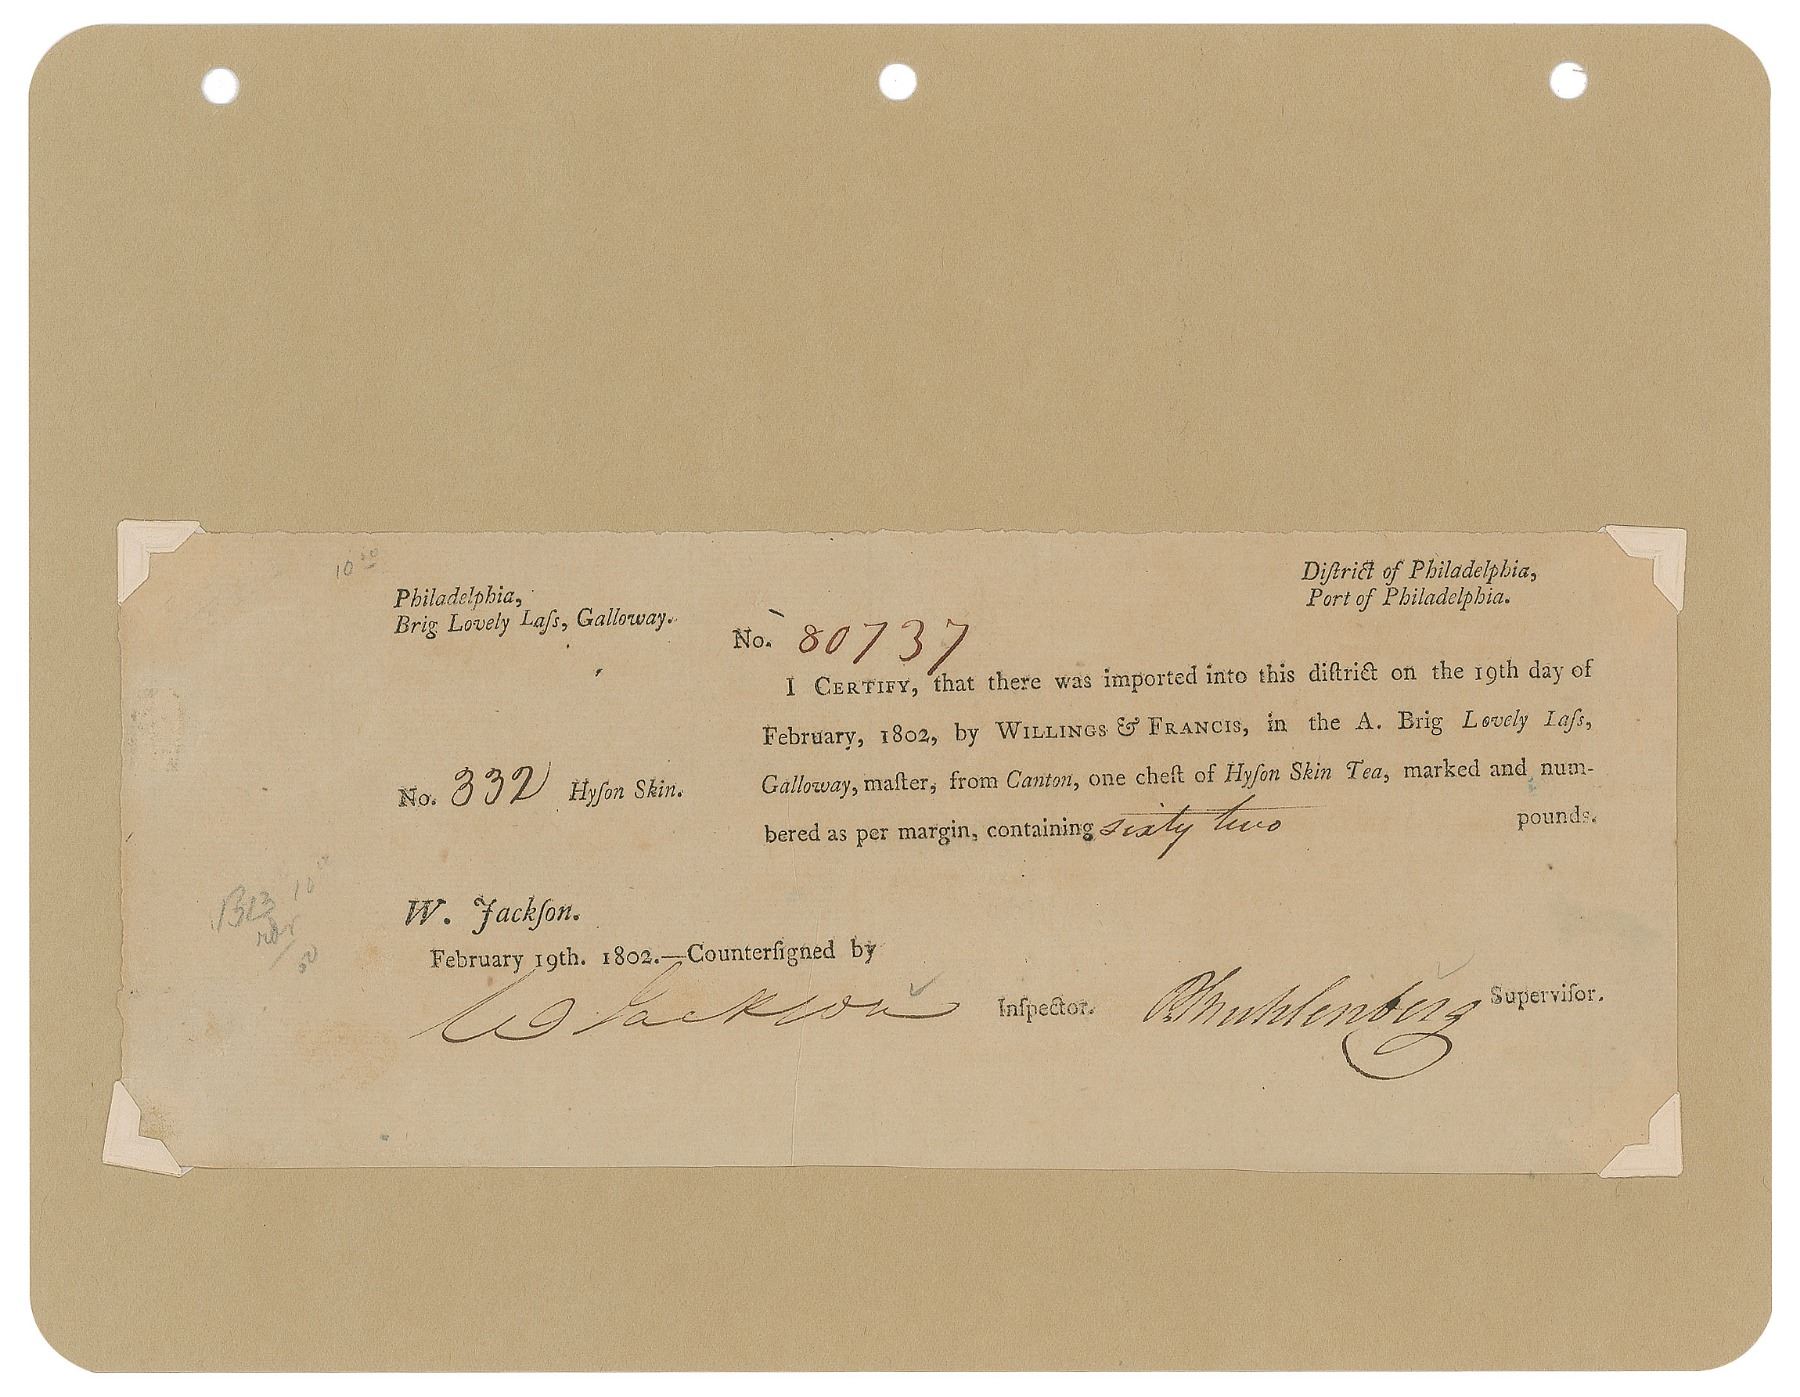 10 00
Philadelphia,
Brig Lovely Laſs, Galloway.
Diſtrict of Philadelphia,
Port of Philadelphia.
No. 80737
I CERTIFY, that there was imported into this diſtrict on the 19th day of
February, 1802, by WILLINGS & FRANCIS, in the A. Brig Lovely Laſs,
No. 332 Hyſon Skin.
Galloway, maſter, from Canton, one cheſt of Hyſon Skin Tea, marked and num-
bered as per margin, containing sixty two pounds.
W. Jackſon.
February 19th. 1802.—Counterſigned by
W Jackson Inſpector. P Muhlenberg Superviſor.